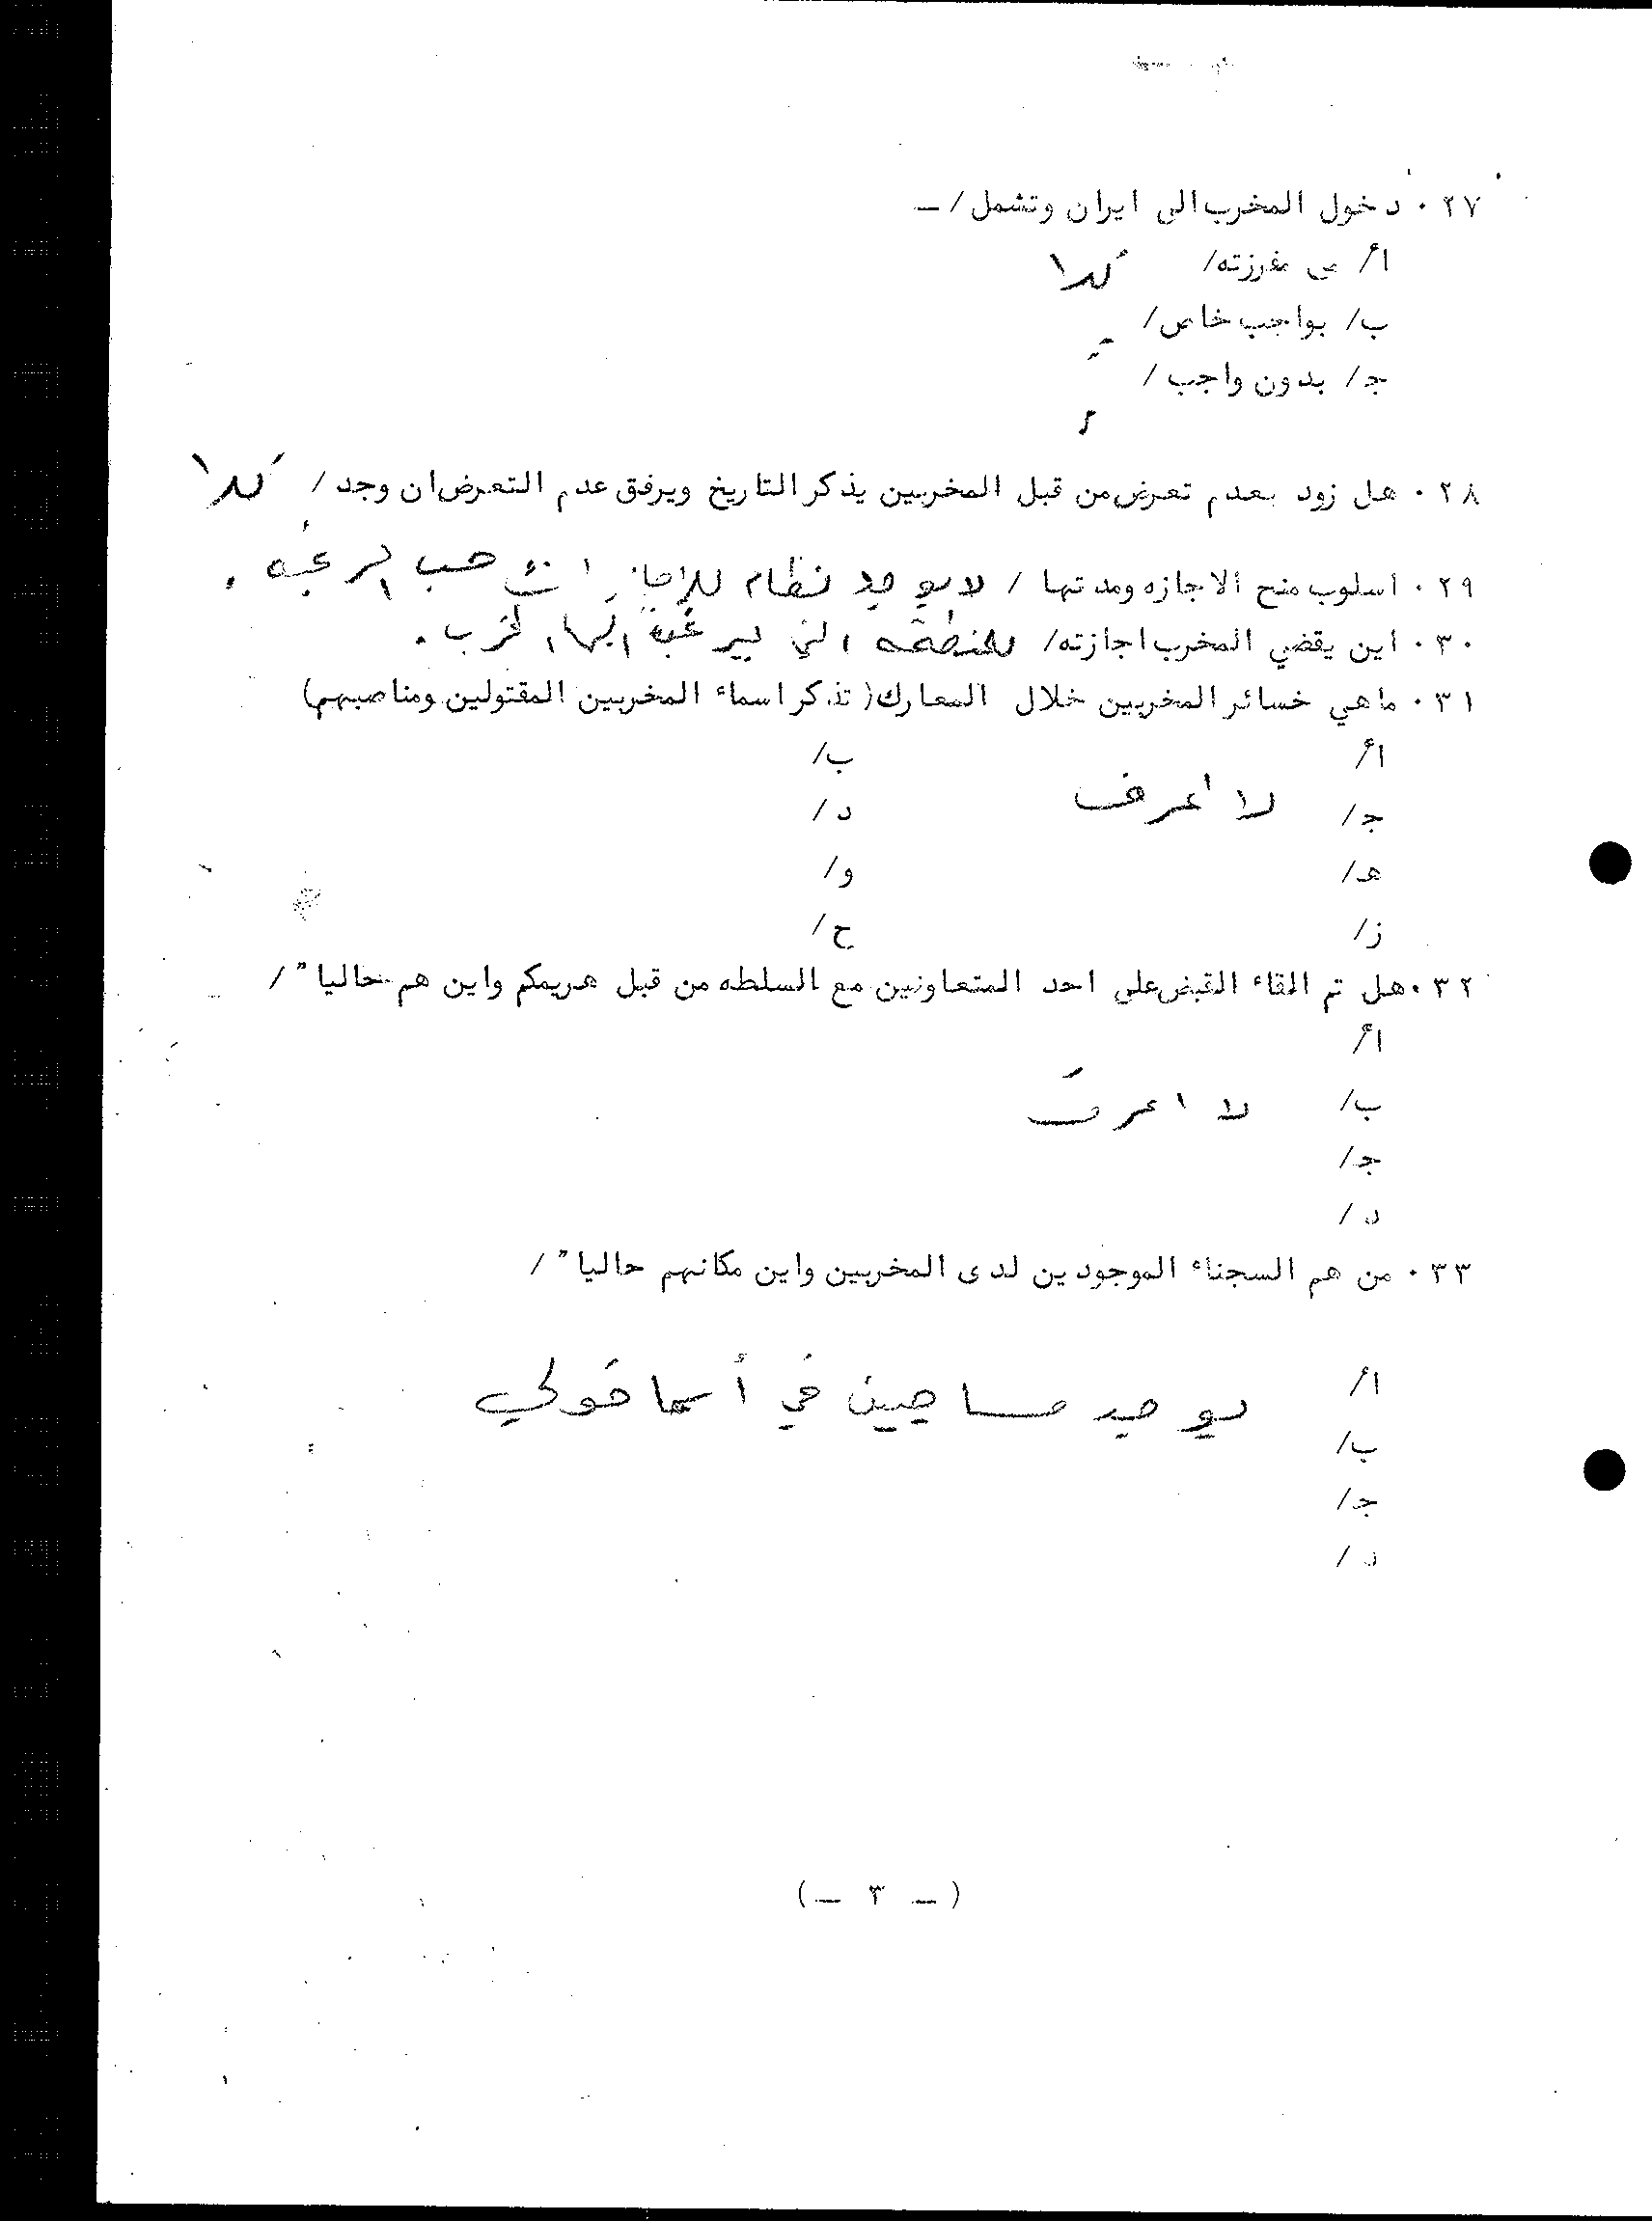 ٢٧ . دخول المخرب الى ايران وتشمل / ــ
أ/ مفرزته/ كلا
ب/ بواجب خاص/
ج/ بدون واجب /
٢٨ . هل زود بعدم تعرض من قبل المخربين يذكر التاريخ ويرفق عدم التعرض ان وجد / كلا
٢٩ . اسلوب منح الاجازه ومدتها / لا يوجد نظام للاجازات حسب الرغبه .
٣٠ . اين يقضي المخرب اجازته/ المنطقه التي يرغب اليها المخرب .
٣١ . ماهي خسائر المخربين خلال المعارك( تذكر اسماء المخربين المقتولين ومناصبهم)
أ/ ب/
لا اعرف
ج/ د/
هـ/ و/
ز/ ح/
٣٢ . هل تم القاء القبض على احد المتعاونين مع السلطه من قبل هريمكم واين هم حاليا" /
أ/
ب/ لا اعرف
ج/
د/
٣٣ . من هم السجناء الموجودين لدى المخربين واين مكانهم حاليا" /
أ/ يوجد مساجين في أسماقولي
ب/
ج/
د/
(ــ ٣ ــ)